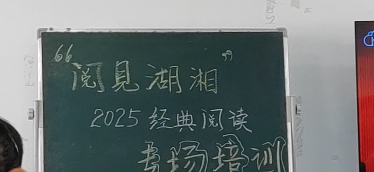 “阅见湖湘”
2025经典阅读
专场培训